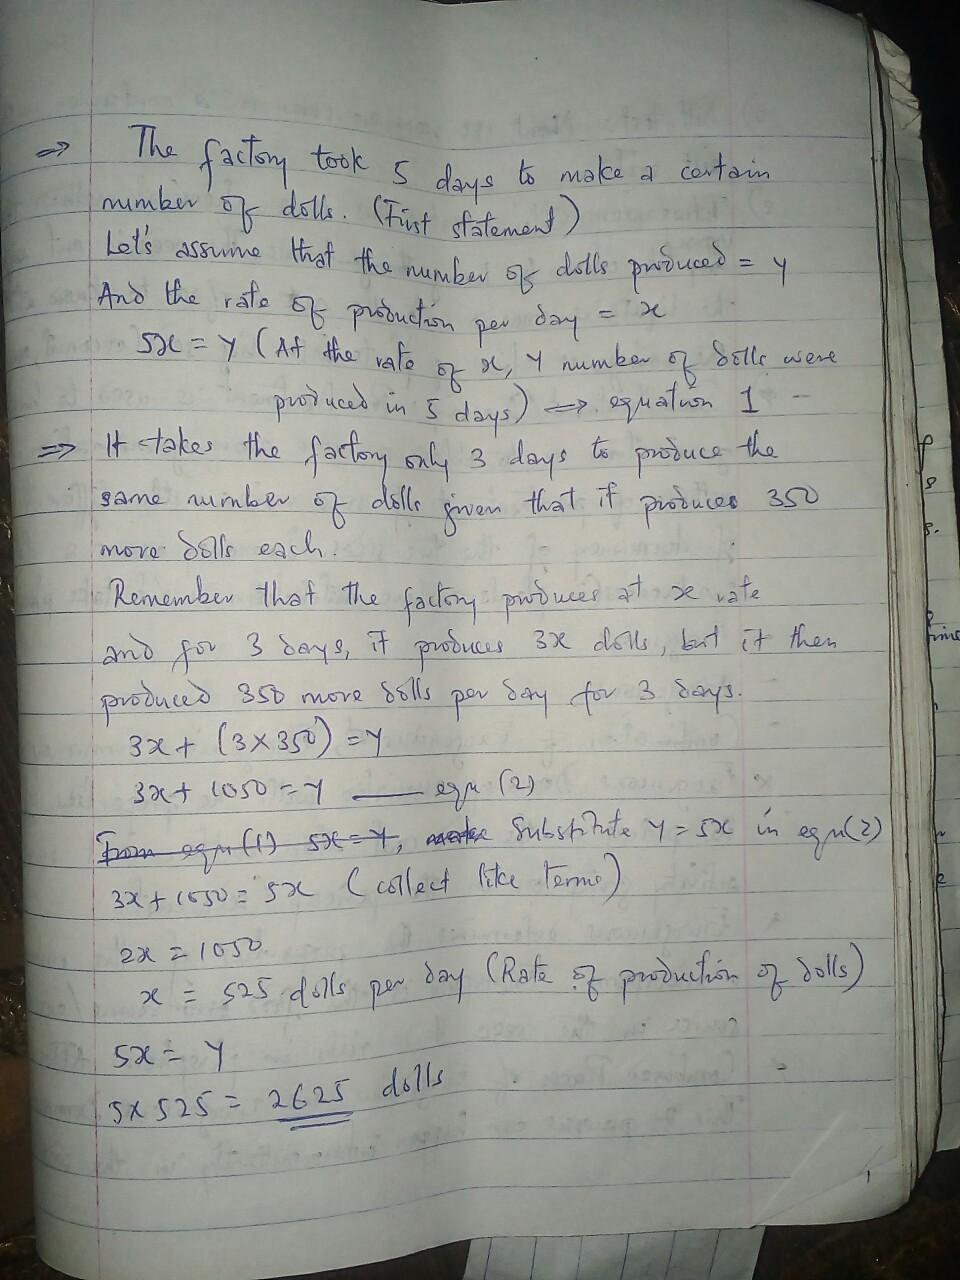 ⇒ The factory took 5 days to make a certain
number of dolls. (First statement)
Let's assume that the number of dolls produced = y
And the rate of production per day = x
5x = y (At the rate of x, y number of dolls were
produced in 5 days) ⇒ equation 1
⇒ It takes the factory only 3 days to produce the
same number of dolls given that it produces 350
more dolls each.
Remember that the factory produces at x rate
and for 3 days, it produces 3x dolls, but it then
produced 350 more dolls per day for 3 days.
3x + (3 x 350) = y
3x + 1050 = y — eqn (2)
From eqn (1) 5x = y, make Substitute y = 5x in eqn(2)
3x + 1050 = 5x (collect like terms)
2x = 1050
x = 525 dolls per day (Rate of production of dolls)
5x = y
5 x 525 = 2625 dolls